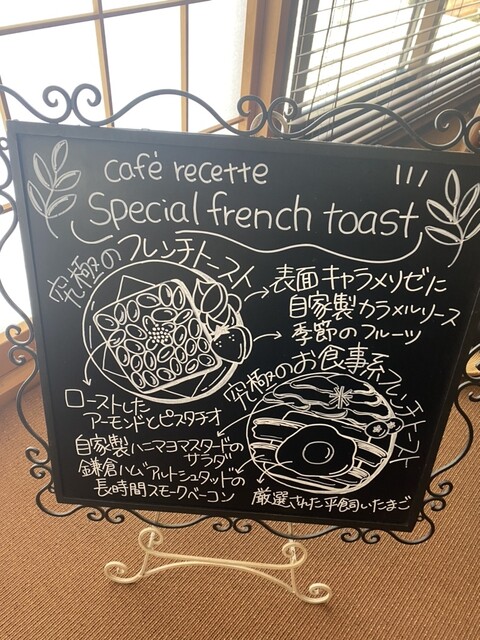 café recette
Special french toast
究極のフレンチトースト
表面キャラメリゼに
自家製カラメルソース
季節のフルーツ
ローストした
アーモンドとピスタチオ
究極のお食事系フレンチトースト
自家製ハニーマヨマスタードの
サラダ
鎌倉ハム アルトシュタットの
長時間スモークベーコン
厳選された平飼いたまご